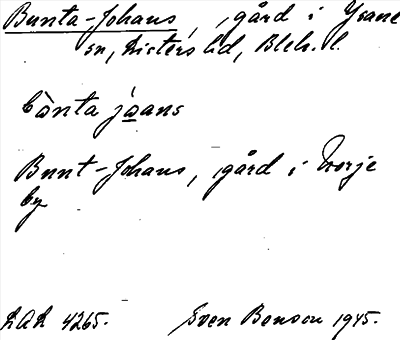 Bunta-Johans, gård i Ysane
sn, Listers hd, Blek. l.
bònta jòans
Bunt-Johans, gård i Norje
by
LAL 4265. Sven Benson 1945.